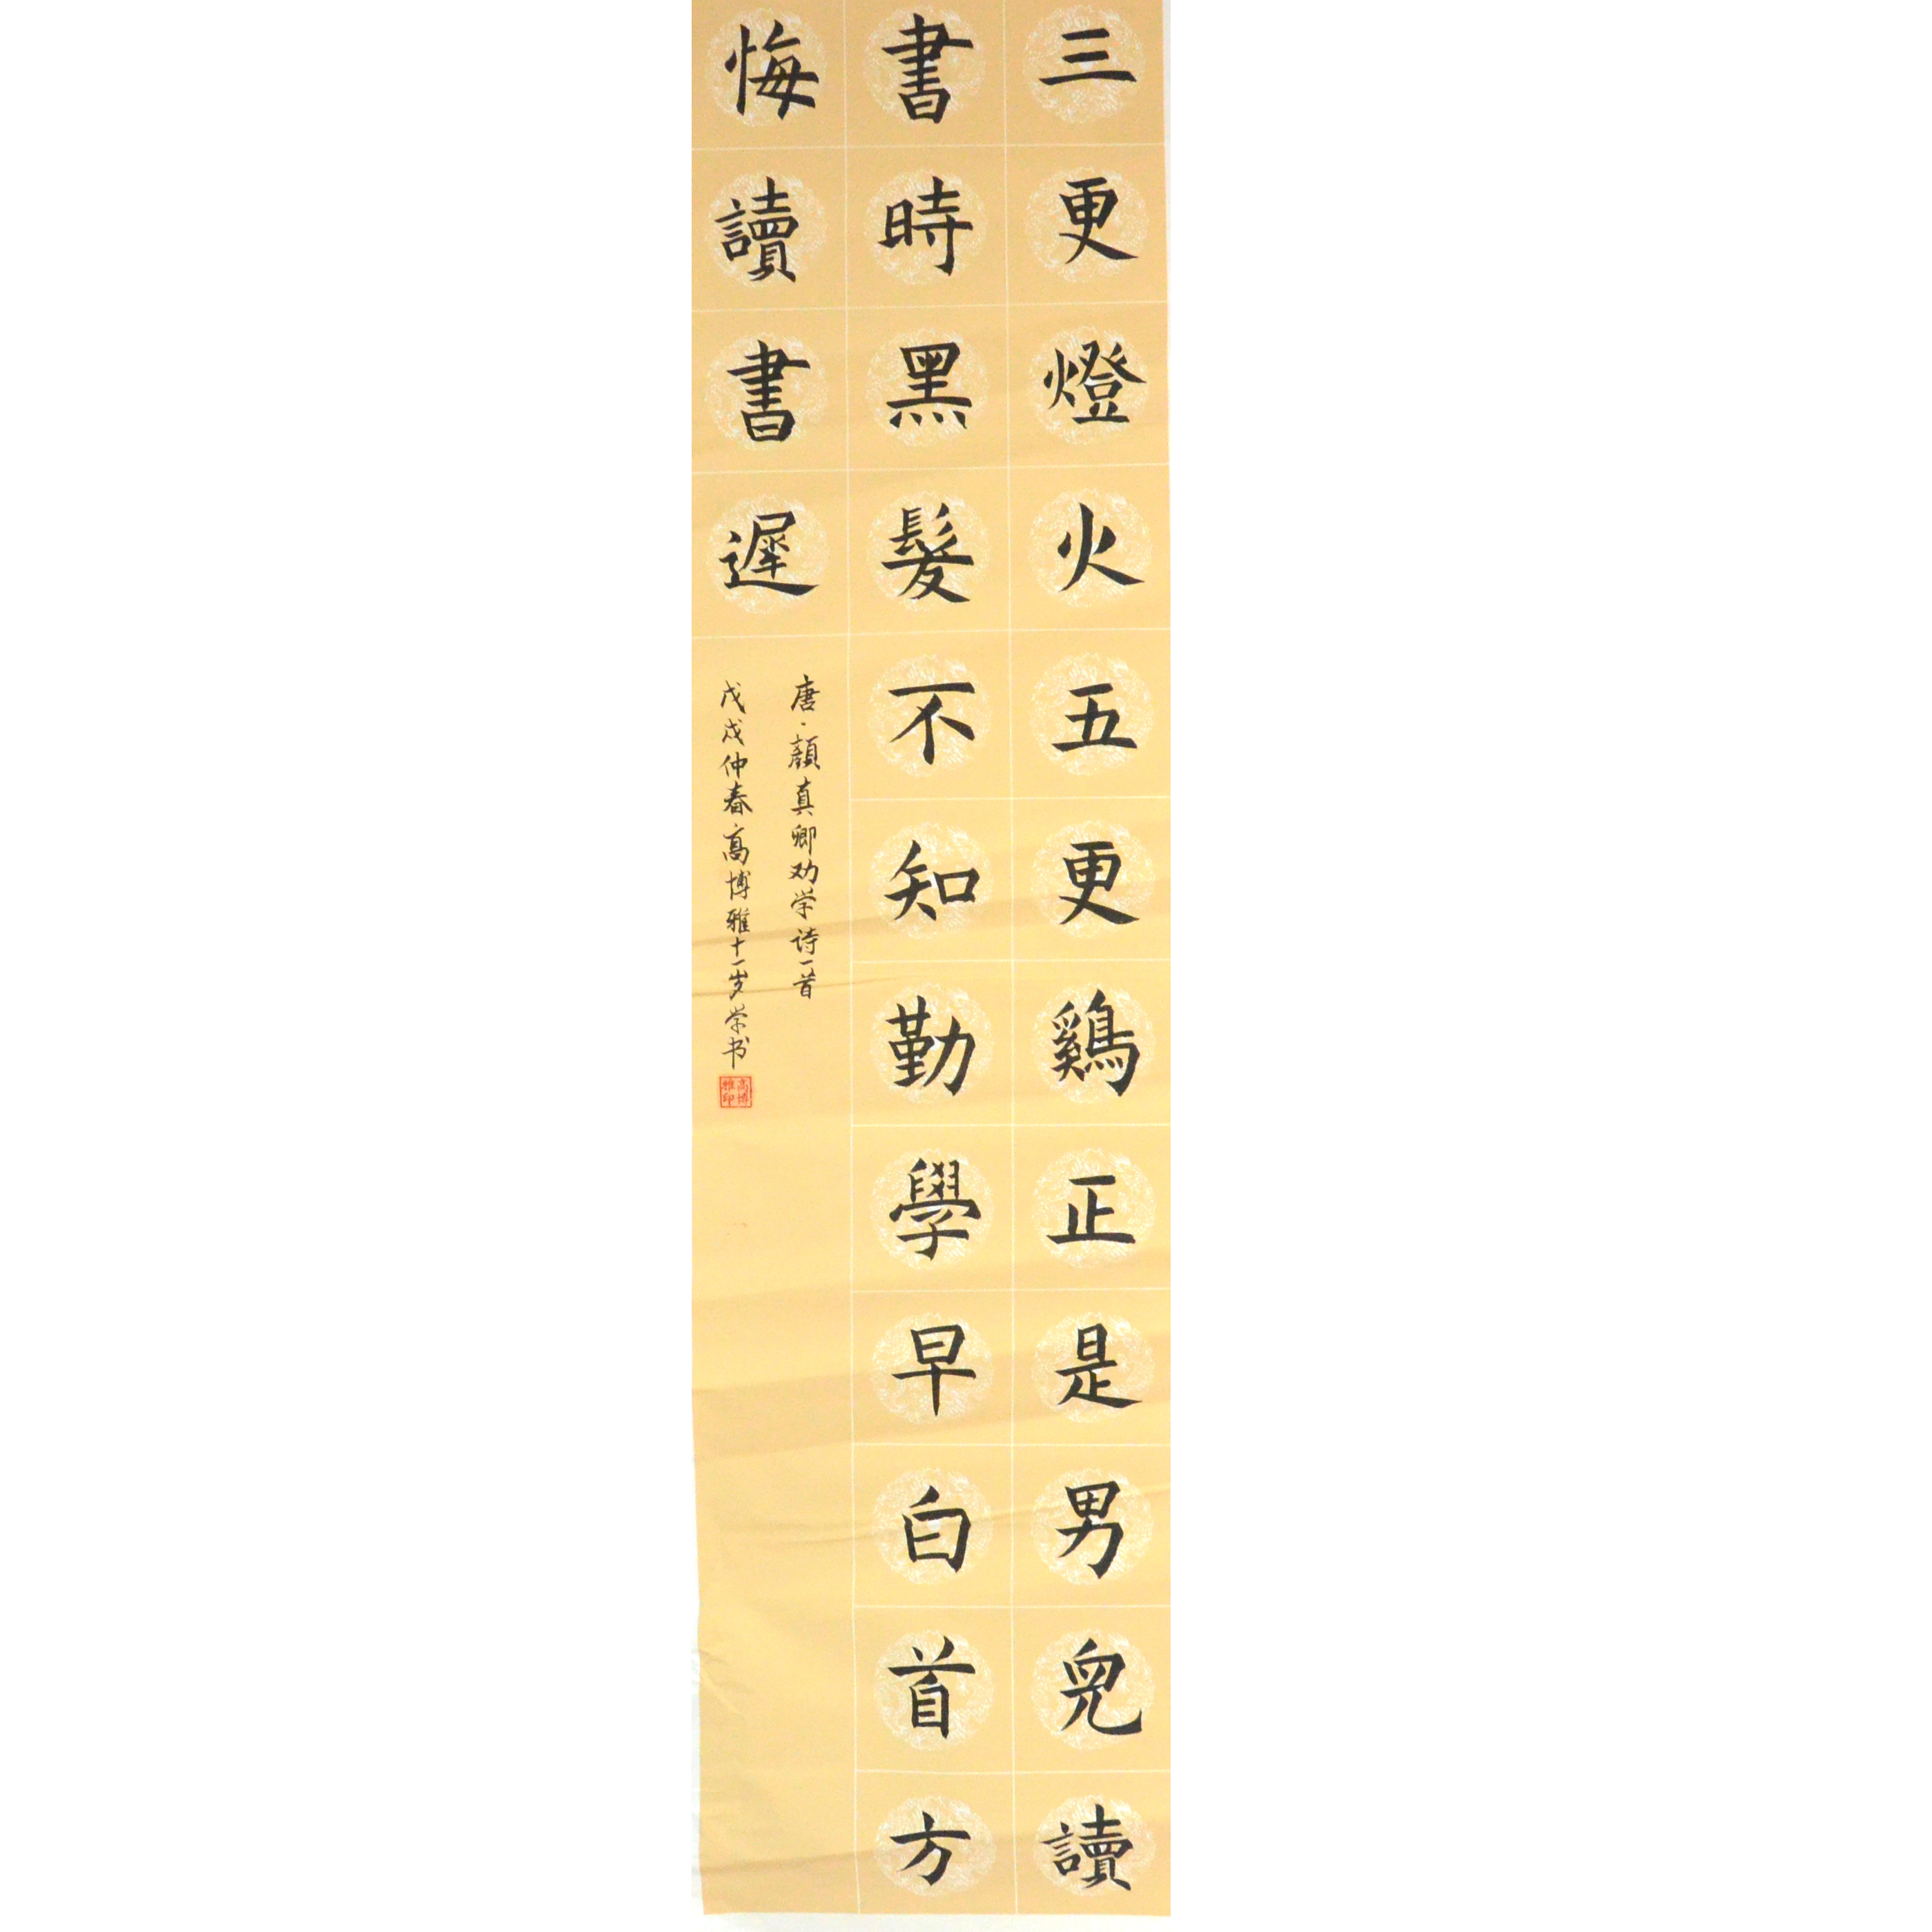 三更燈火五更鷄正是男兒讀
書時黑髮不知勤學早白首方
悔讀書遲
唐·顏真卿劝学诗一首
戊戌仲春高博雅十一岁学书
高博
雅印